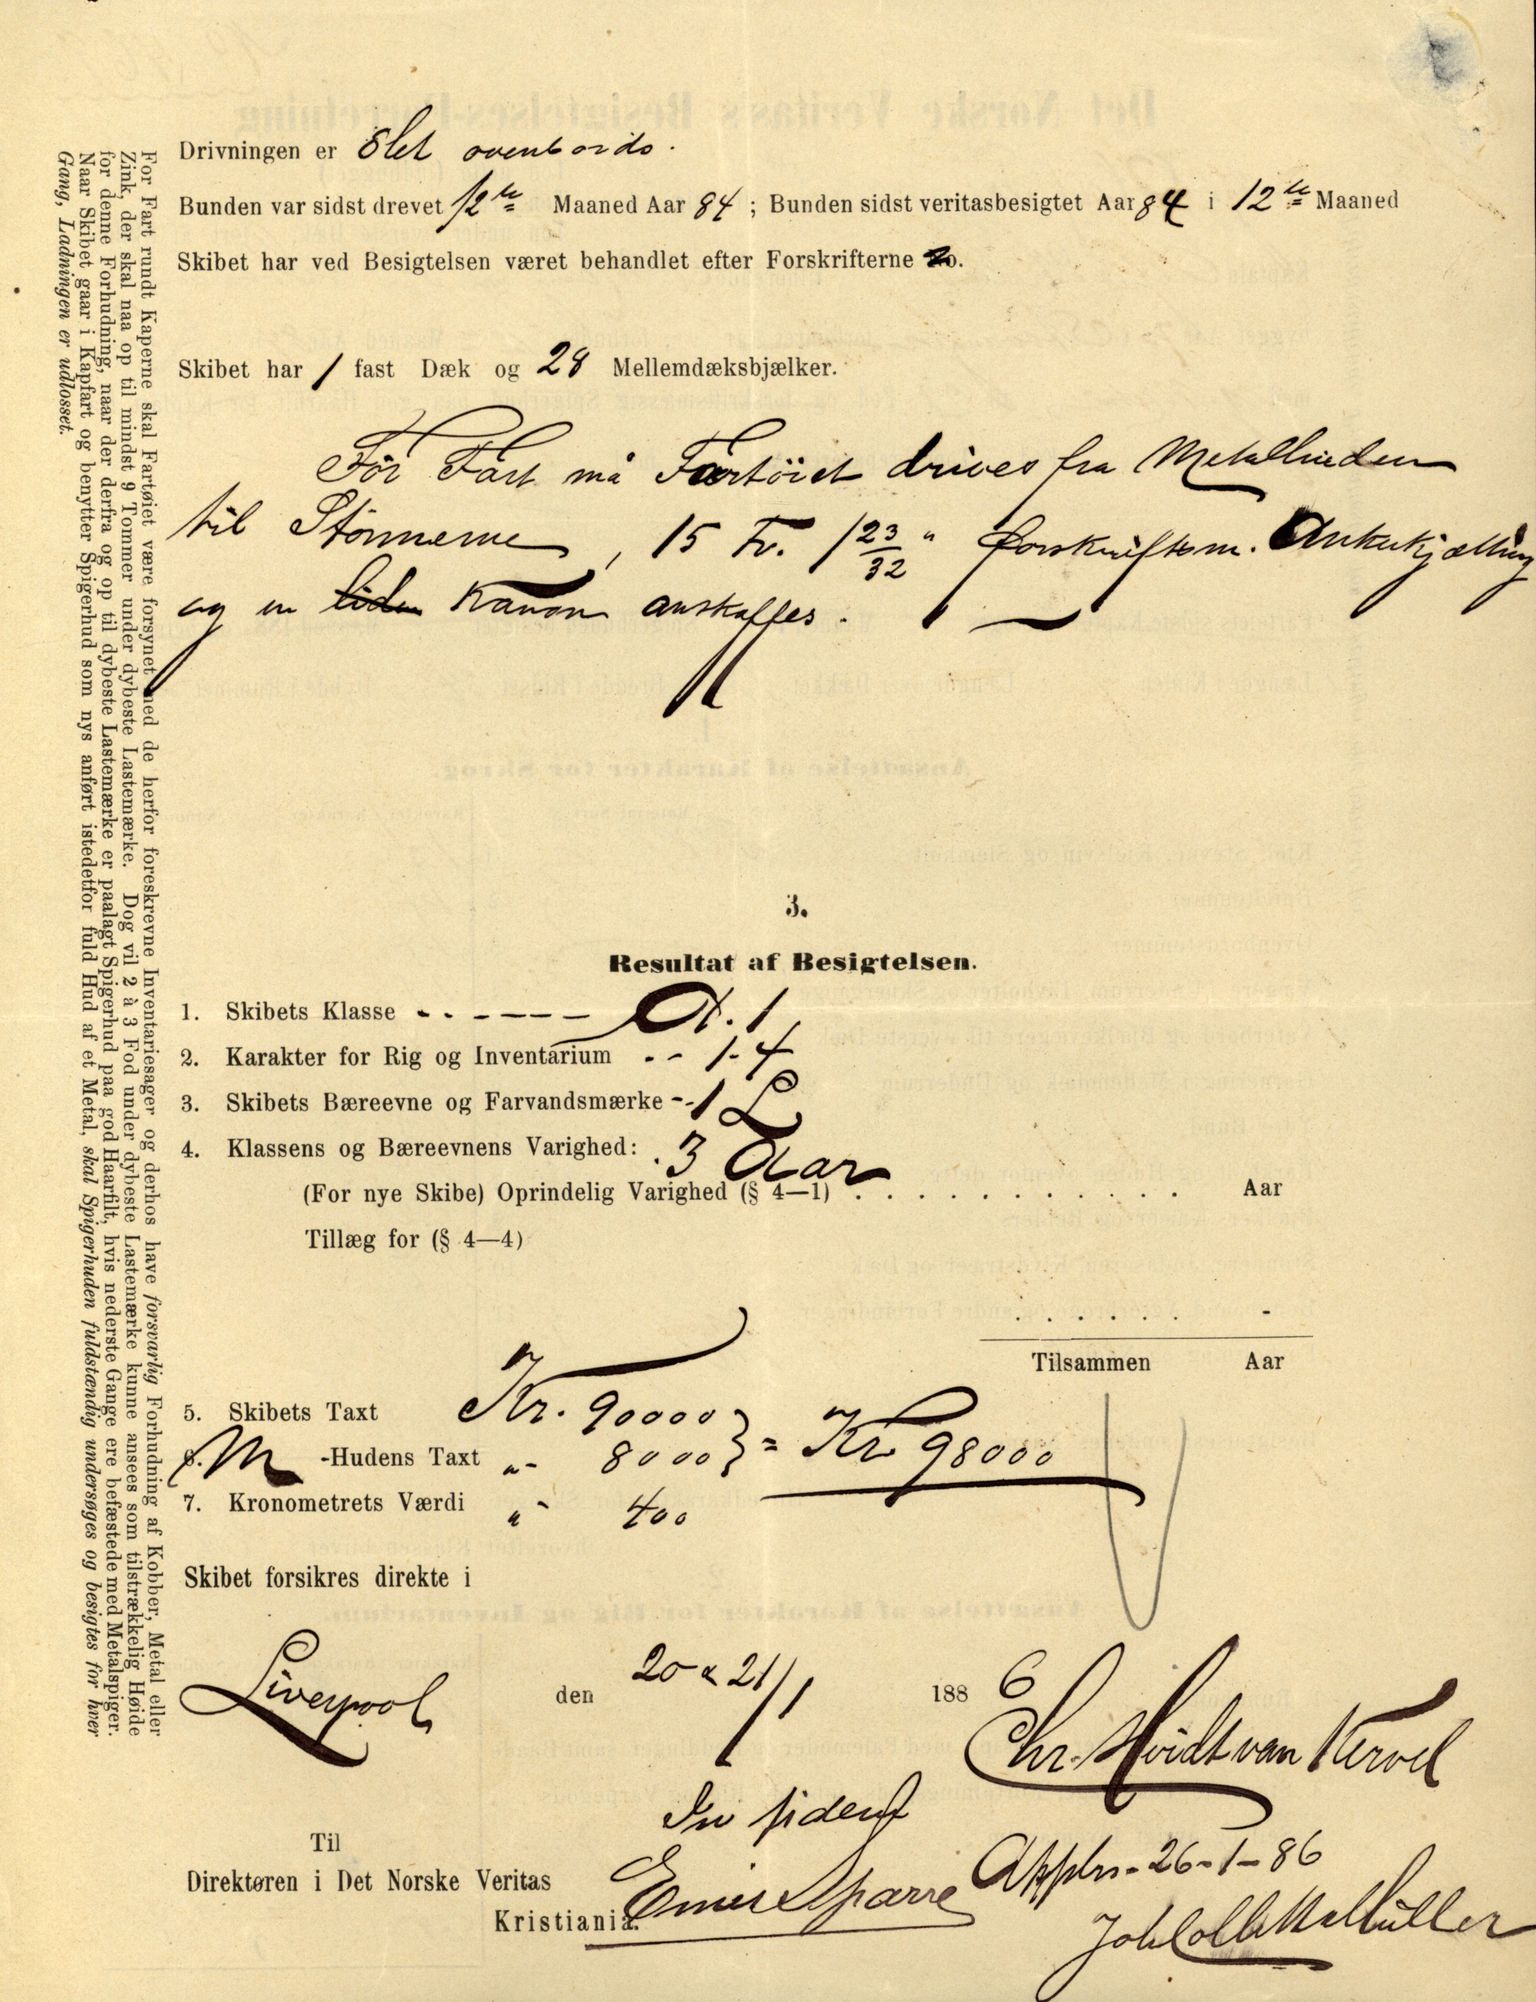 Drivningen er Slet ovenbords.
Bunden var sidst drevet 12te Maaned Aar 84 ; Bunden sidst veritasbesigtet Aar 84 i 12te Maaned
Skibet har ved Besigtelsen været behandlet efter Forskrifterne
Skibet har 1 fast Dæk og 28 Mellemdæksbjælker.
För Fart må Fartöiet drives fra Metalhuden
til Stönnerne, 15 Fv. 1 23/32 " forskriftsm. Ankerkjætting
og en liden Kanon anskaffes.
3.
Resultat af Besigtelsen.
1. Skibets Klasse A. 1
2. Karakter for Rig og Inventarium 1-4
3. Skibets Bæreevne og Farvandsmærke 1 L
4. Klassens og Bæreevnens Varighed: 3 Aar
(For nye Skibe) Oprindelig Varighed (§ 4—1) . . . . . . . . . . . Aar
Tillæg for (§ 4—4)
. . . . . . -
Tilsammen Aar
5. Skibets Taxt Kr. 90000
6. M -Hudens Taxt „ 8000 } = Kr. 98000
7. Kronometrets Værdi „ 400
Skibet forsikres direkte i
Liverpool den 20 & 21/1 1886
Chr. Hvidt van Kervel
In fidem
Til
Direktøren i Det Norske Veritas
Kristiania.
Emil Sparre
26-1-86
Müller
For Fart rundt Kaperne skal Fartøiet være forsynet med de herfor foreskrevne Inventariesager og derhos have forsvarlig Forhudning af Kobber, Metal eller
Zink, der skal naa op til mindst 9 Tommer under dybeste Lastemærke. Dog vil 2 à 3 Fod under dybeste Lastemærke kunne ansees som tilstrækkelig Høide
for denne Forhudning, naar der derfra og op til dybeste Lastemærke er paalagt Spigerhud paa god Haarfilt, hvis nederste Gange ere befæstede med Metalspiger.
Naar Skibet gaar i Kapfart og benytter Spigerhud som nys anført istedetfor fuld Hud af et Metal, skal Spigerhuden fuldstændig undersøges og besigtes for hver
Gang, Ladningen er udlosset.